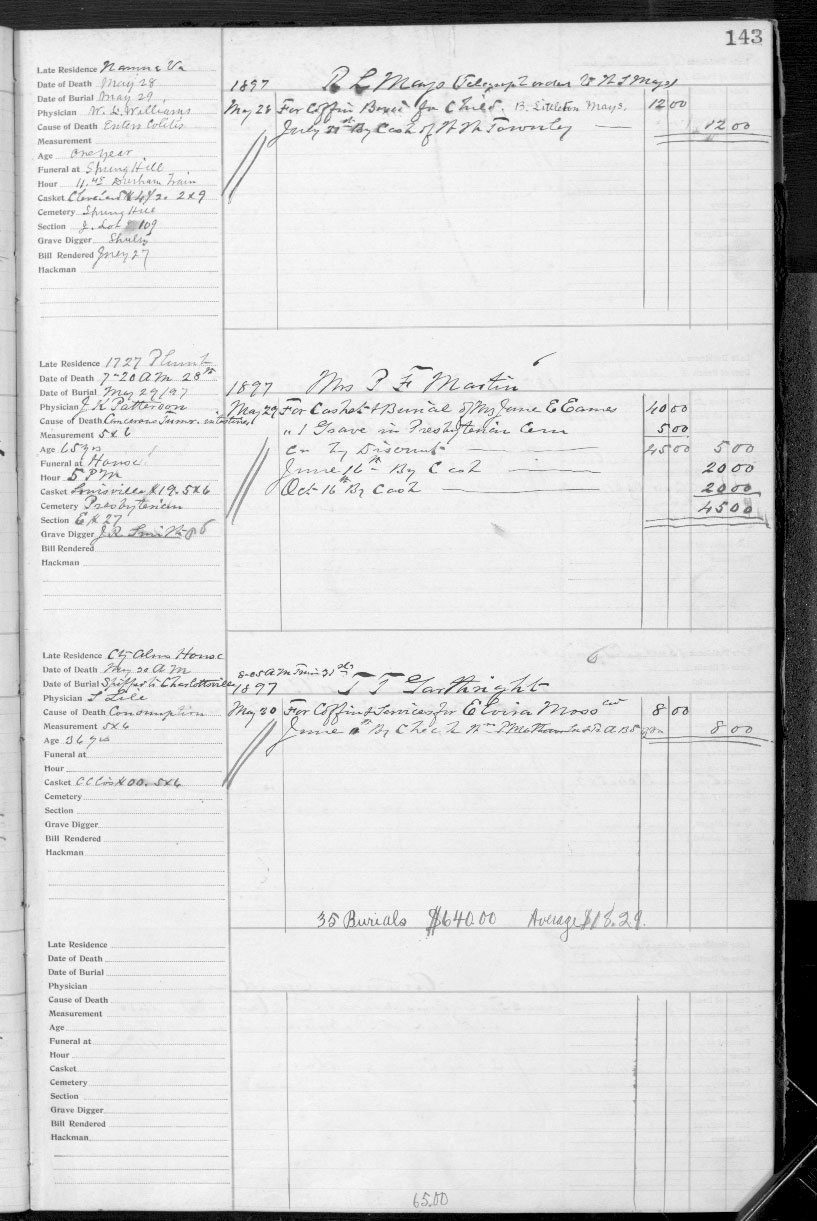 143
Late Residence Namna Va
Date of Death May 28
Date of Burial May 29
Physician W. L. Williams
Cause of Death Entero Colitis
Measurement
Age One year
Funeral at Spring Hill
Hour 11.45 Durham Train
Casket 2x9
Cemetery Spring Hill
Section J. Lot 109
Grave Digger
Bill Rendered
Hackman
1897 R L Mays
May 28 For Coffin Box for Child. B. Littleton Mays. 12 00
July 21st By Cash of Townley — 12 00
Late Residence 1727
Date of Death 7-20 AM 28th
Date of Burial May 29/97
Physician J K Patterson
Cause of Death Cancerous Tumor. intestines
Measurement 5x6
Age 65 yrs
Funeral at House
Hour 5 PM
Casket Louisville # 19. 5x6
Cemetery Presbyterian
Section E # 27
Grave Digger J. R. Smith
Bill Rendered
Hackman
6
1897 Mrs P F Martin
May 29 For Casket & Burial of Mrs Jane E Eames 40 00
" 1 Grave in Presbyterian Cem 5 00
Cr by Discount — 45 00 5 00
June 16th By Cash — 20 00
Oct 16th By Cash — 20 00
45 00
Late Residence City Alms House
Date of Death May 30 AM
Date of Burial Shipped to Charlottesville 8-05 AM Train 31st
Physician Lile
Cause of Death Consumption
Measurement 5x6
Age 36 yrs
Funeral at
Hour
Casket C C Co's # 00. 5x6
Cemetery
Section
Grave Digger
Bill Rendered
Hackman
6
1897 T T Garthright
May 30 For Coffin & Services for Elvira Moss col 8 00
June By Check 8 00
35 Burials $640.00 Average $18.29.
Late Residence
Date of Death
Date of Burial
Physician
Cause of Death
Measurement
Age
Funeral at
Hour
Casket
Cemetery
Section
Grave Digger
Bill Rendered
Hackman
65.00